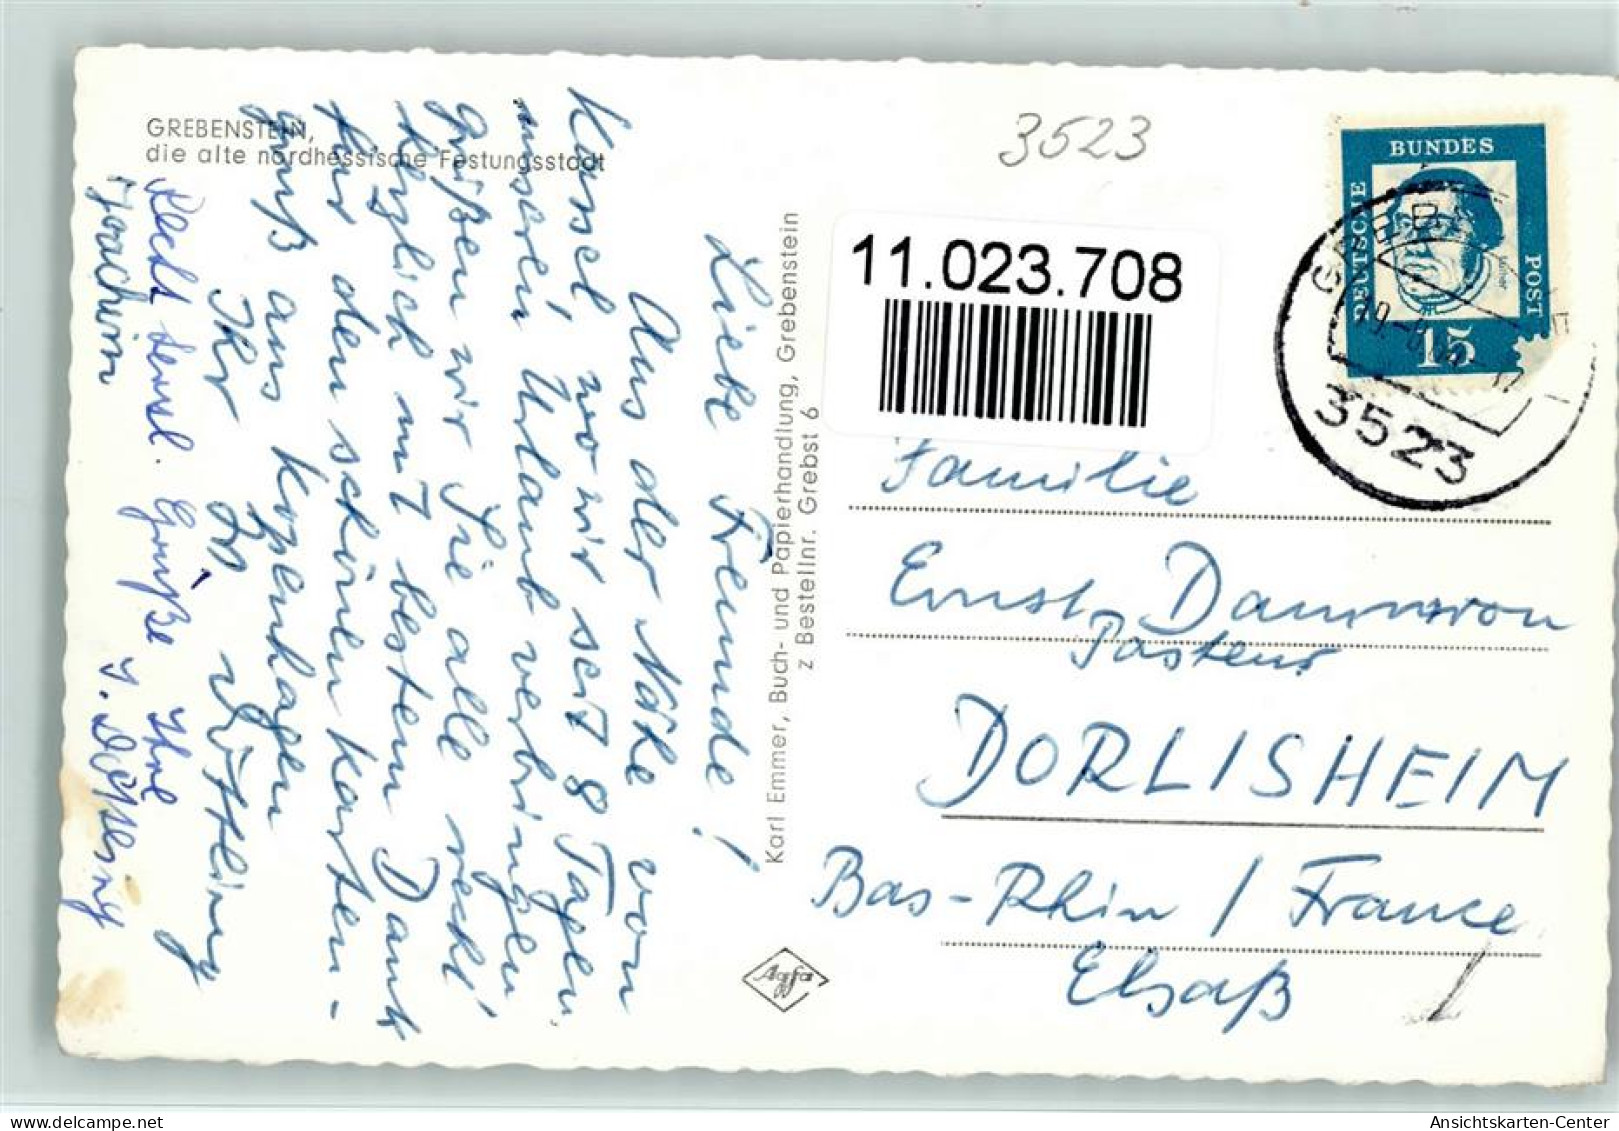 GREBENSTEIN,
die alte nordhessische Festungsstadt
Liebe Freunde!
Aus der Nähe von
Kassel, wo wir seit 8 Tagen
unseren Urlaub verbringen
grüßen wir Sie alle recht
herzlich mit bestem Dank
für den schönen Karten-
gruß aus Kopenhagen
Ihr
Joachim
Recht herzl. Grüße Ihre
Karl Emmer, Buch- und Papierhandlung, Grebenstein
z Bestellnr. Grebst 6
Agfa
3523
11.023.708
DEUTSCHE
BUNDES
POST
Luther
15
3523
Familie
Ernst
Pasteur
DORLISHEIM
Bas-Rhin / France
Elsaß
Ansichtskarten-Center